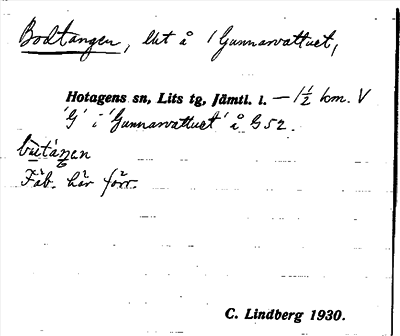 Bodtangen, litt å i Gunnarvattnet,
Hotagens sn, Lits tg, Jämtl. l. — 1½ km. V
'G' i 'Gunnarvattnet' å G 52.
Fäb. här förr.
C. Lindberg 1930.